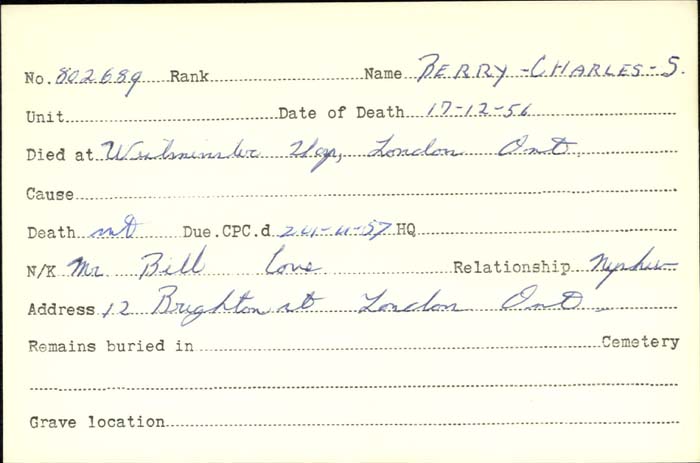 No. 802689 Rank Name BERRY-CHARLES-S.
Unit Date of Death 17-12-56
Died at Westminster Hosp, London Ont.
Cause
Death not Due. CPC.d 24-4-57 HQ
N/K Mr. Bill Love Relationship Nephew
Address 12 Brighton st London Ont.
Remains buried in Cemetery
Grave location